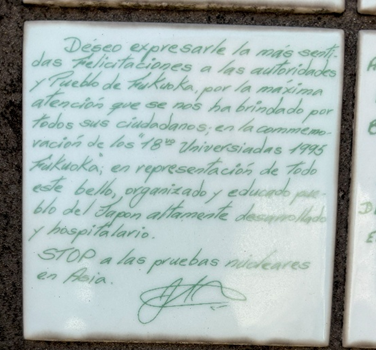 Deseo expresarle la más senti-
das Felicitaciones a las autoridades
y Pueblo de Fukuoka, por la máxima
atención que se nos ha brindado por
todos sus ciudadanos; en la commemo-
ración de los 18vo Universiadas 1995
Fukuoka; en representación de todo
este bello, organizado y educado pue-
blo del Japon altamente desarrollado
y hospitalario.
STOP a las pruebas nucleares
en Asia.